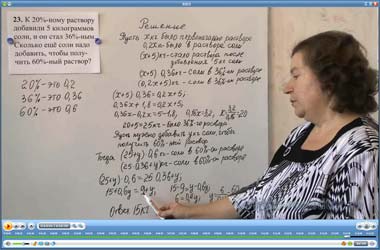 23. К 20%-ному раствору
добавили 5 килограммов
соли, и он стал 36%-ным.
Сколько ещё соли надо
добавить, чтобы полу-
чить 60%-ный раствор?
20% - это 0,2
36% - это 0,36
60% - это 0,6
Решение
Пусть x кг было первоначально раствор
0,2x кг было в растворе соли
(x+5) кг - стало раствора после
добавления 5 кг соли
(x+5) 0,36 кг - соли в 36%-м растворе
(0,2x+5) кг - соли в 36%-м растворе
(x+5)·0,36 = 0,2x+5;
0,36x+1,8 = 0,2x+5;
0,36x-0,2x = 5-1,8; 0,16x = 3,2; x = 3,2/0,16 = 20
20+5 = 25 кг - было 36%-го раствора
Пусть нужно добавить y кг соли, чтобы
получить 60%-ный раствор
Тогда (25+y)·0,6 кг - соли в 60%-ом растворе
(25·0,36+y) кг - соли в 60%-ом растворе
(25+y)·0,6 = 25·0,36+y;
15+0,6y = 9+y; 15-9 = y-0,6y;
6 = 0,4y;
Ответ: 15 кг